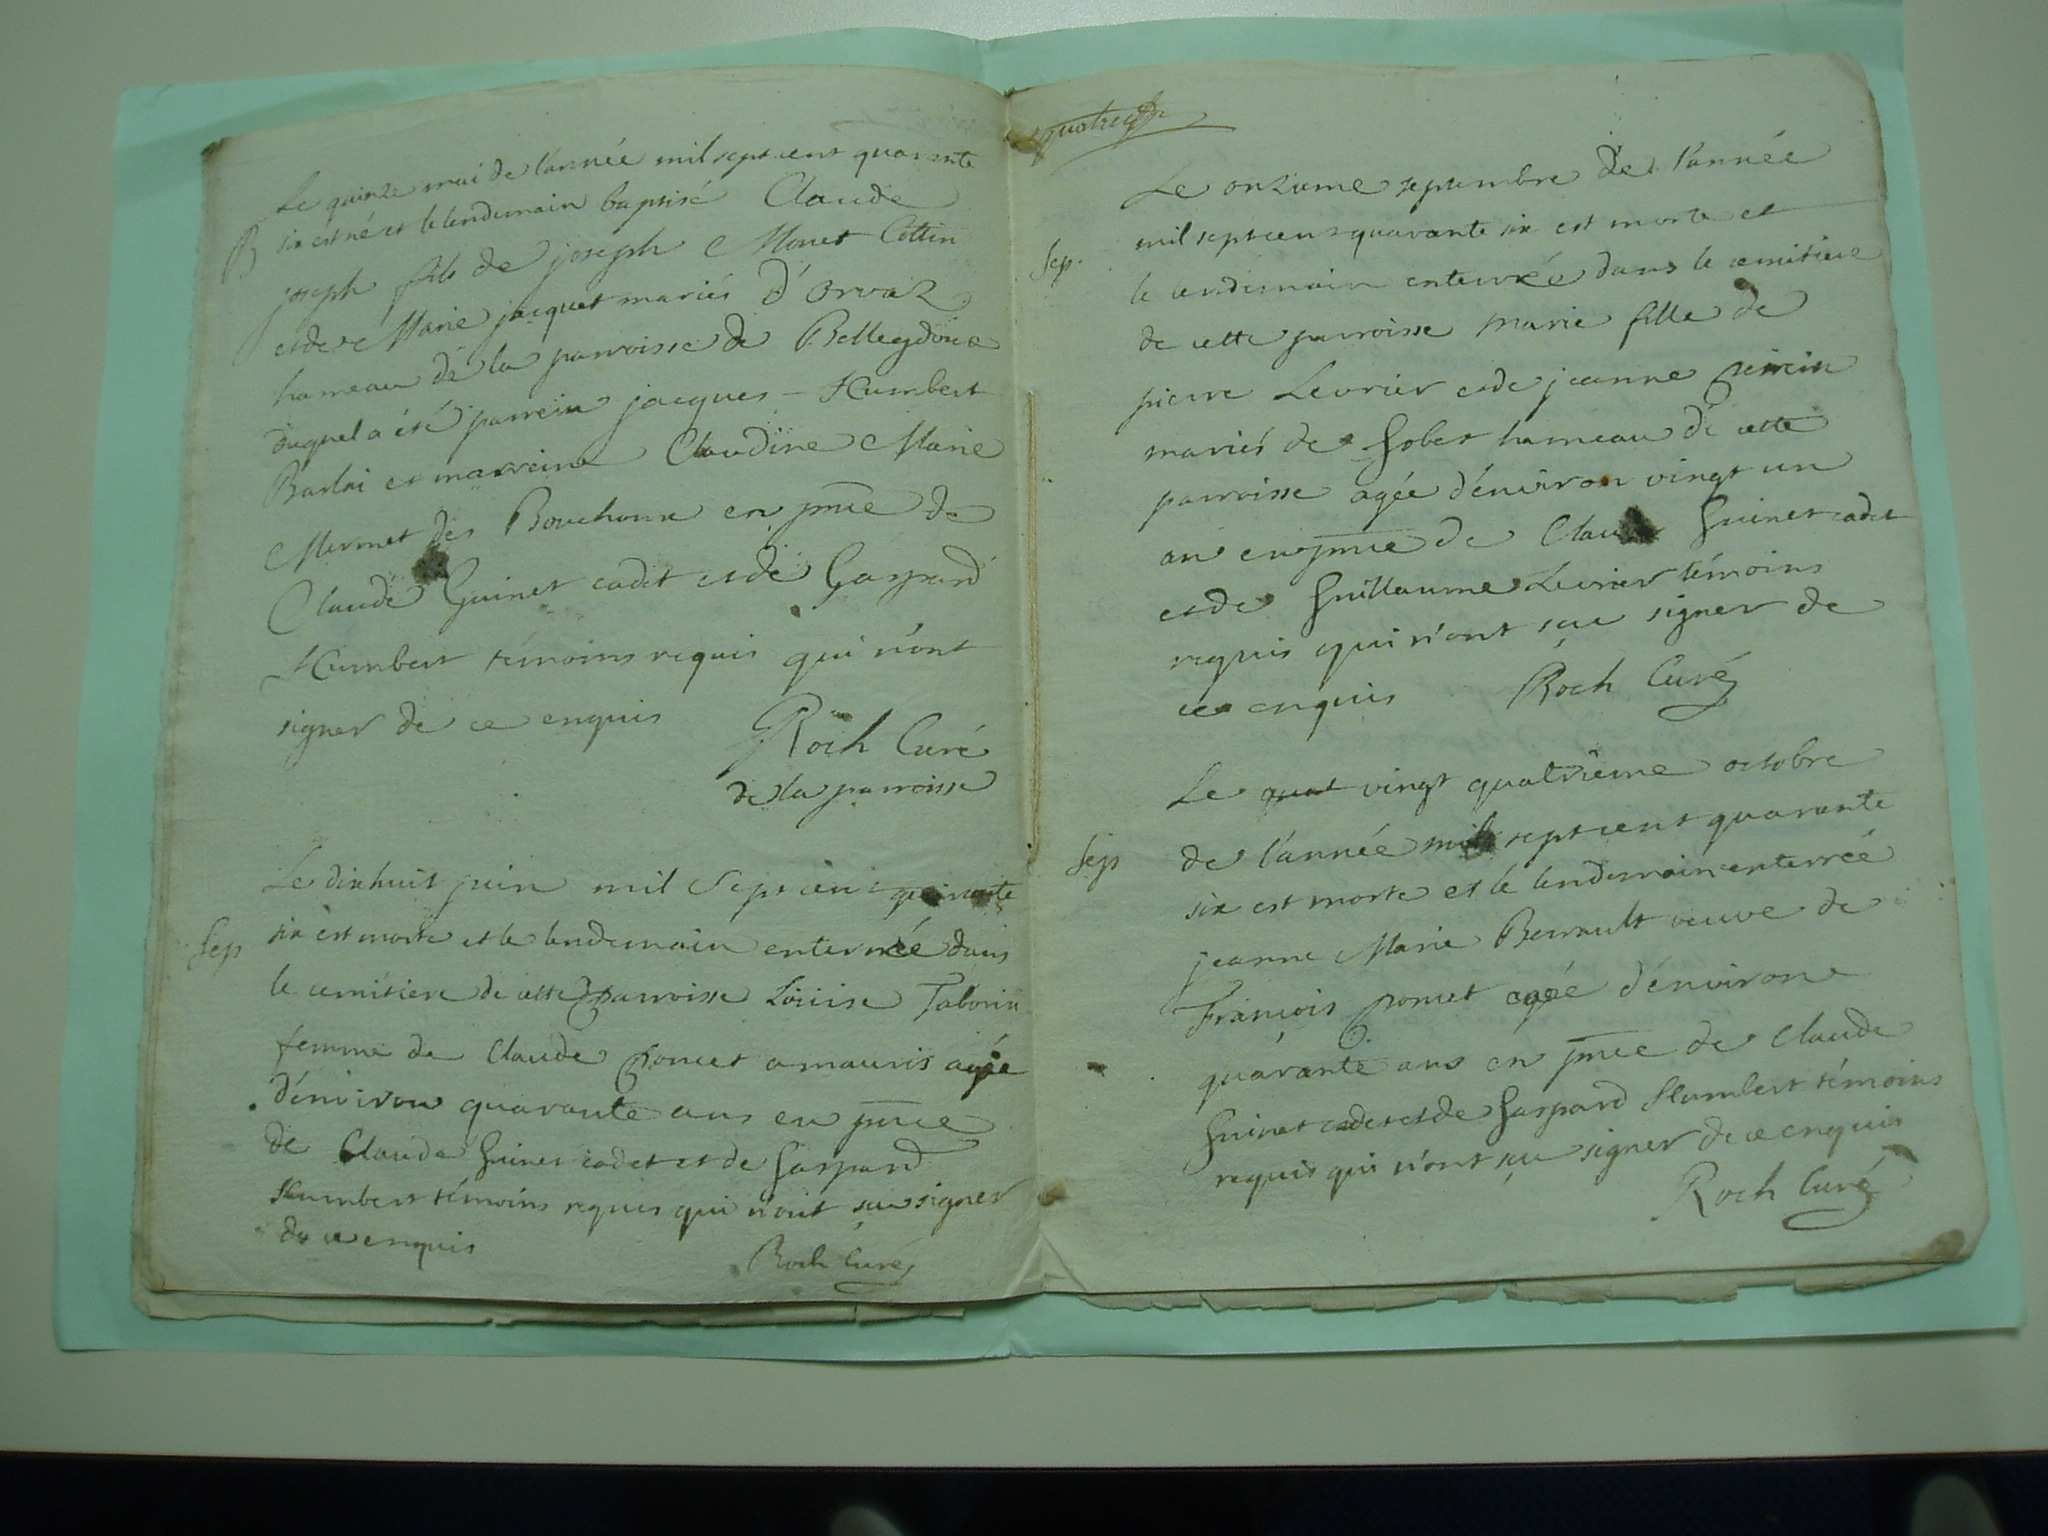 Le quinze mai de l'année mil sept cent quarante
B six est né et le lendemain baptisé Claude
joseph fils de joseph Monet Cottin
et de Marie jacquet mariés d'Orvaz
hameau de la parroisse de Belleydoux
duquel a été parrein jacques Humbert
Barlai et marreine Claudine Marie
Mermet des Bouchoux en pnce de
Claude Guinet cadet et de Gaspard
Humbert témoins requis qui n'ont
signer de ce enquis
Roch Curé
de la parroisse
Le dixhuit juin mil sept cent quarante
Sep six est morte et le lendemain enterrée dans
le cemitiere de cette parroisse Loüise Taborin
femme de Claude poncet amauris agée
d'environ quarante ans en pnce
de Claude Guinet cadet et de Gaspard
Humbert témoins requis qui n'ont sçu signer
de ce enquis
Roch Curé
quatre
Le onzieme septembre de l'année
Sep. mil sept cent quarante six est morte et
le lendemain enterrée dans le cemitiere
de cette parroisse marie fille de
pierre Levrier et de jeanne
mariés de Gobet hameau de cette
parroisse agée d'environ vingt un
an en pnce de Claude Guinet cadet
et de Guillaume Levrier témoins
requis qui n'ont sçu signer de
ce enquis Roch Curé
Le quat vingt quatrieme octobre
Sep de l'année mil sept cent quarante
six est morte et le lendemain enterrée
jeanne Marie Perrault veuve de
François poncet agée d'environ
quarante ans en pnce de Claude
Guinet cadet et de Gaspard Humbert témoins
requis qui n'ont sçu signer de ce enquis
Roch Curé